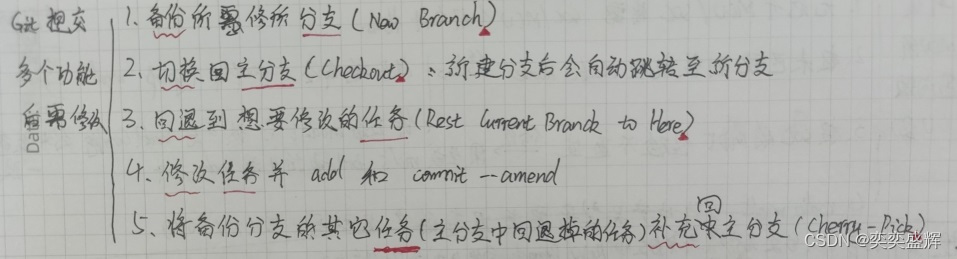 Git提交
多个功能
后需修改
1、备份所需修所分支(New Branch)
2、切换回主分支(Checkout)：新建分支后会自动跳转至新分支
3、回退到想要修改的任务(Rest Current Branck to Here)
4、修改任务并 add 和 commit --amend
5、将备份分支的其它任务(主分支中回退掉的任务)补充回主分支(Cherry-Pick)
CSDN @奕奕盛辉